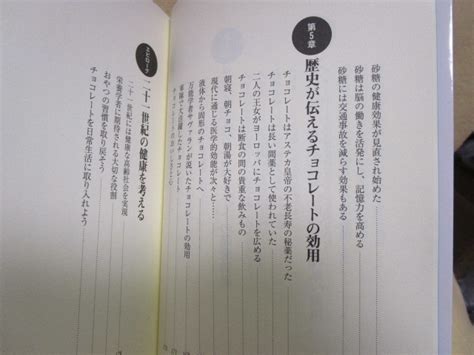 砂糖の健康効果が見直され始めた
砂糖は脳の働きを活発にし、記憶力を高める
砂糖には交通事故を減らす効果もある
第5章
歴史が伝えるチョコレートの効用
チョコレートはアステカ皇帝の不老長寿の秘薬だった
チョコレートは長い間薬として使われていた
二人の王女がヨーロッパにチョコレートを広める
チョコレートは断食の間の貴重な飲みもの
朝寝、朝チョコ、朝湯が大好きで
現代に通じる医学的効能が次々と……
液体から固形のチョコレートへ
万能学者サヴァランが説いたチョコレートの効用
エピローグ
二十一世紀の健康を考える
二十一世紀には健康な高齢社会を実現
栄養学者に期待される大切な役割
おやつの習慣を取り戻そう
チョコレートを日常生活に取り入れよう